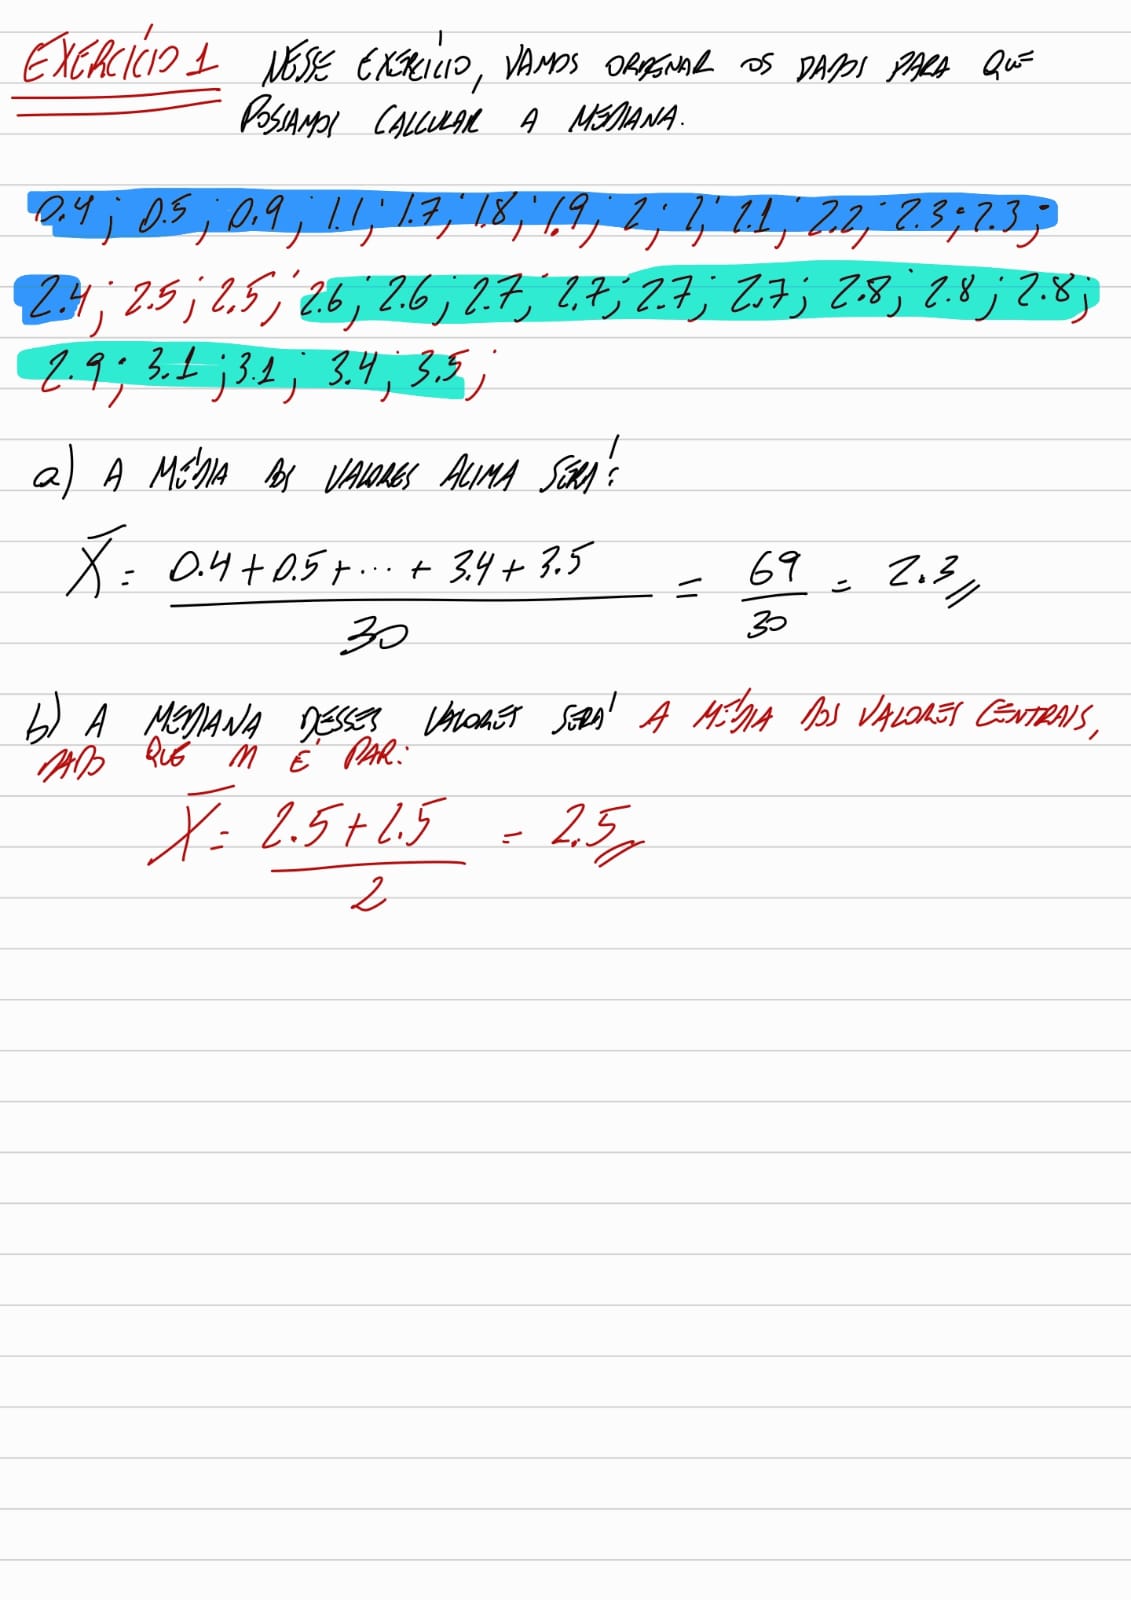 EXERCÍCIO 1 NESSE EXERCÍCIO, VAMOS ORDENAR OS DADOS PARA QUE
POSSAMOS CALCULAR A MEDIANA.
0.4; 0.5; 0.9; 1.1; 1.7; 1.8; 1.9; 2; 2; 2.1; 2.2; 2.3; 2.3;
2.4; 2.5; 2.5; 2.6; 2.6; 2.7; 2.7; 2.7; 2.7; 2.8; 2.8; 2.8;
2.9; 3.1; 3.1; 3.4; 3.5;
a) A MÉDIA DOS VALORES ACIMA SERÁ:
X̅ = (0.4 + 0.5 + ... + 3.4 + 3.5) / 30 = 69 / 30 = 2.3
b) A MEDIANA DESSES VALORES SERÁ A MÉDIA DOS VALORES CENTRAIS,
DADO QUE M É PAR:
X̅ = (2.5 + 2.5) / 2 = 2.5